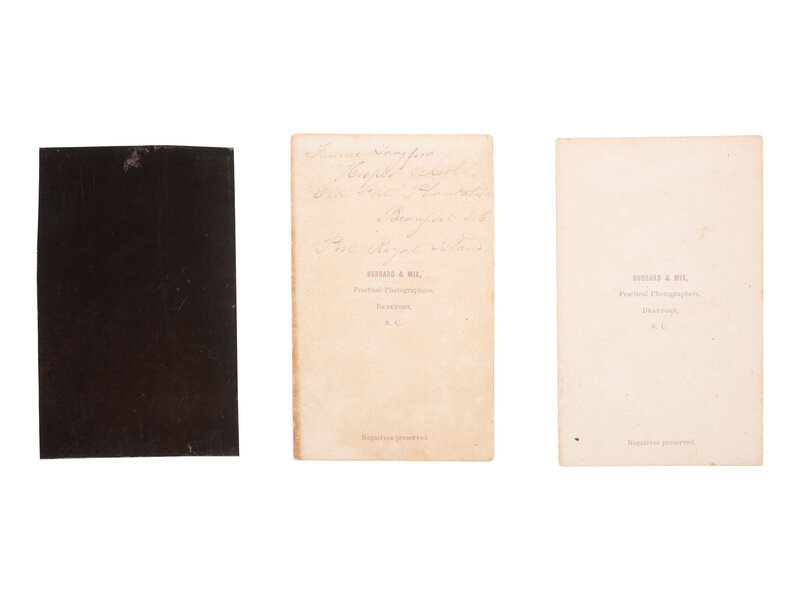 Fannie Langford.
"Hooper School".
"Old Fort Plantation
Beaufort S.C.
Port Royal Island.
HUBBARD & MIX,
Practical Photographers,
BEAUFORT,
S. C.
Negatives preserved.
HUBBARD & MIX,
Practical Photographers,
BEAUFORT,
S. C.
Negatives preserved.